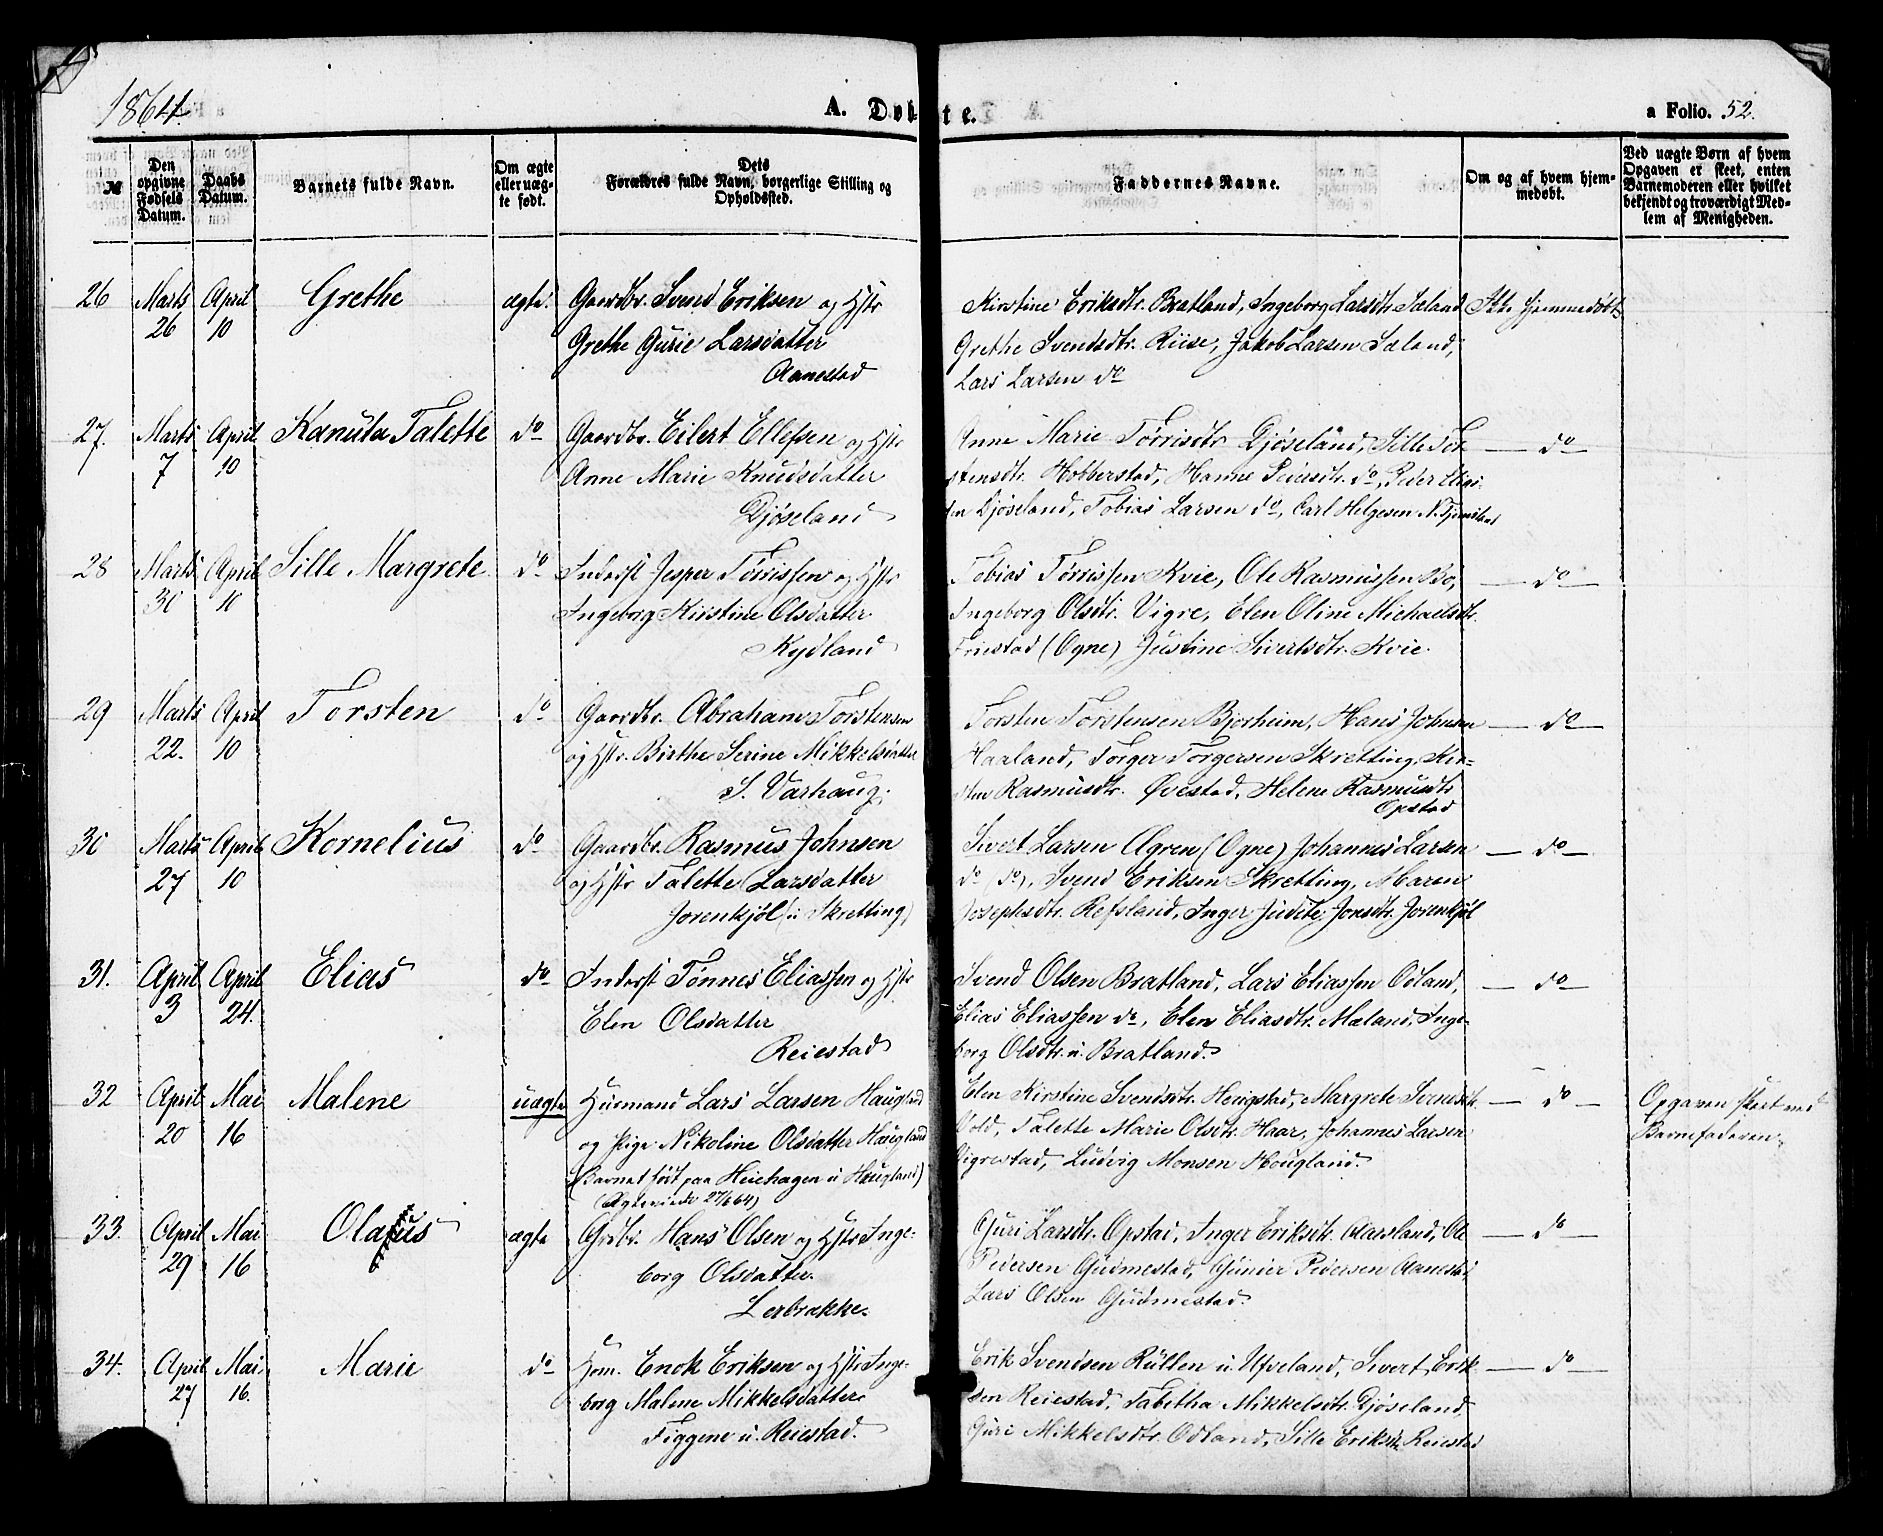 1864.
A. Døbte.
a Folio. 52.
№
Den opgivne Fødsels Datum.
Daabs Datum.
Barnets fulde Navn.
Om ægte eller uægte født.
Dets Forældres fulde Navn, borgerlige Stilling og Opholdssted.
Faddernes Navne.
Om og af hvem hjemmedøbt.
Ved uægte Børn af hvem Opgaven er skeet, enten Barnemoderen eller hvilket bekjendt og troværdigt Medlem af Menigheden.
26 Marts April Grethe ægte. Gaardbr. Svend Eriksen og Hstr Kirstine Eriksdtr. Bratland, Ingeborg Larsdtr. Sæland Ikke hjemmedøbt
26 10 Grethe Gurie Larsdatter Grethe Svendsdtr. Riise, Jakob Larsen Sæland,
Aanestad Lars Larsen do
27. Marts April Kanuta Talette do Gaardbr. Eilert Ellefsen og Hstr Anne Marie Tørrisdtr. Djøseland, Sille Tor- — do —
7 10 Anne Marie Knudsdatter stensdtr. Hobberstad, Hanne Peiersdtr. do, Peder Elias-
Djøseland sen Djøseland, Tobias Larsen do, Carl Helgesen N.
28 Marts April Sille Margrete do Inderst Jesper Tørrissen og Hstr Tobias Tørrissen Kvie, Ole Rasmussen Bø, — do —
30 10 Ingeborg Kirstine Olsdatter Ingeborg Olsdtr. Vigre, Elen Oline Michaelsdtr.
Kydland Friestad (Ogne) Justine Sivertsdtr. Kvie.
29 Marts April Torsten do Gaardbr. Abraham Torstensen Torsten Torstensen Bjorheim, Hans Johnsen — do —
22. 10 og Hstr. Birthe Serine Mikkelsdatter Haaland, Torger Torgersen Skretting, Kir-
S. Varhaug. sten Rasmusdtr. Øvestad, Helene Rasmusdtr
Opstad
30 Marts April Kornelius do Gaardbr. Rasmus Johnsen Sivert Larsen Ogren (Ogne) Johannes Larsen — do —
27 10 og Hstr Talette Larsdatter do (do), Svend Eriksen Skretting, Maren
Jorenkjøl (u Skretting) Josephsdtr. Refsland, Inger Judite Jonsdtr. Jorenkjøl
31. April April Elias do Inderst Tønnes Eliassen og Hstr Svend Olsen Bratland, Lars Eliassen Odland, — do —
3 24. Elen Olsdatter Elias Eliassen do, Elen Eliasdtr. Mæland, Inge-
Reiestad borg Olsdtr. u. Bratland.
32 April Mai Malene uægte Husmand Lars Larsen Haugland Elen Kirstine Svendsdtr. Heigstad, Margrete Svendsdtr. — do — Opgaven skeet ved
20 16 og Pige Nikoline Olsdatter Haugland Vold, Talette Marie Olsdtr. Haar, Johannes Larsen Barnefaderen.
(Barnet født paa Heiehagen u Haugland) Vigrestad, Ludvig Monsen Hougland.
(Ægteviede 27/6 64)
33. April Mai Olaus ægte Grdbr. Hans Olsen og Hstr Inge- Guri Larsdtr. Opstad, Inger Eriksdtr. Aarsland, Ole — do —
29 16 borg Olsdatter. Pedersen Gudmestad, Gunder Pedersen Aanestad
Lerbrække. Lars Olsen Gudmestad.
34. April Mai Marie do Hsm. Enok Eriksen og Hstr Inge- Erik Svendsen Rullen u. Ufveland, Sivert Erik- — do —
27 16. borg Malene Mikkelsdatter sen Reiestad, Tabetha Mikkelsdtr. Djøseland,
Figgene u. Reiestad. Guri Mikkelsdtr. Odland, Sille Eriksdtr. Reiestad